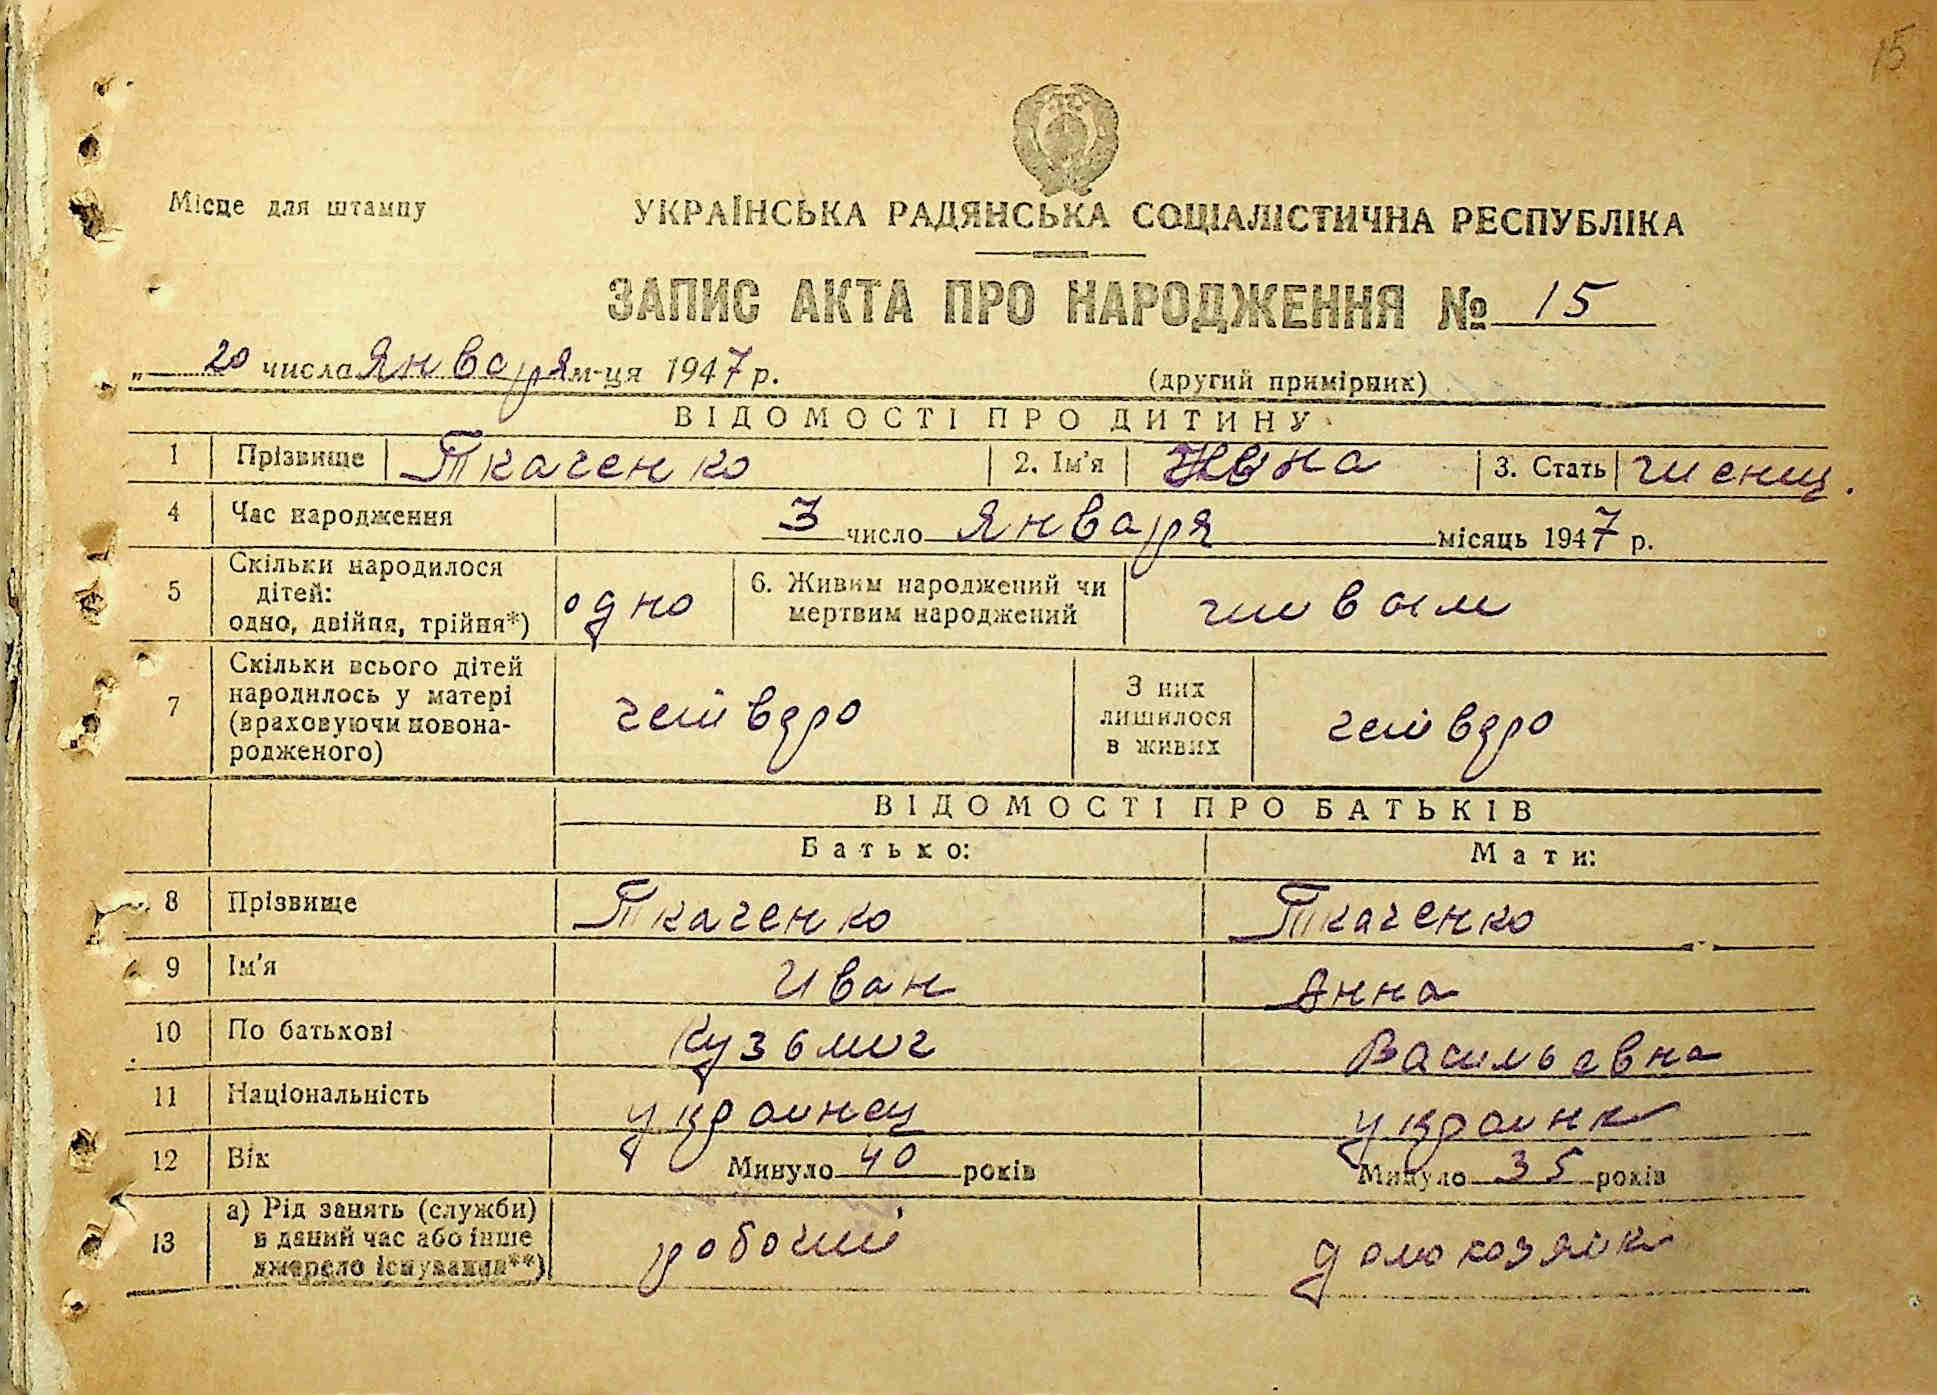 15
Місце для штампу
УКРАЇНСЬКА РАДЯНСЬКА СОЦІАЛІСТИЧНА РЕСПУБЛІКА
ЗАПИС АКТА ПРО НАРОДЖЕННЯ № 15
„ 20 числа января м-ця 1947 р.
(другий примірник)
ВІДОМОСТІ ПРО ДИТИНУ
1 Прізвище Ткаченко 2. Ім'я 3. Стать женщ.
4 Час народження 3 число января місяць 1947 р.
5 Скільки народилося
дітей:
одно, двійня, трійня*) одно
6. Живим народжений чи
мертвим народжений живым
7 Скільки всього дітей
народилось у матері
(враховуючи новона-
родженого) четверо
З них
лишилося
в живих четверо
ВІДОМОСТІ ПРО БАТЬКІВ
Батько: Мати:
8 Прізвище Ткаченко Ткаченко
9 Ім'я Иван Анна
10 По батькові Кузьмич Васильевна
11 Національність украинец украинк
12 Вік Минуло 40 років Минуло 35 років
13 а) Рід занять (служби)
в даний час або інше
джерело існування**) робочий домохозяйк